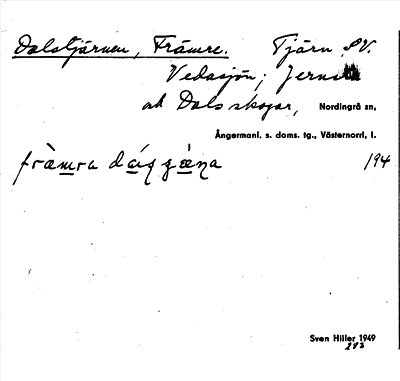 Dalstjärnen, Främre. Tjärn SV.
Vedasjön; Jerns
och Dals skogar, Nordingrå sn,
Ångermanl. s. doms. tg., Västernorrl, l.
fràmra 194
Sven Hiller 1949